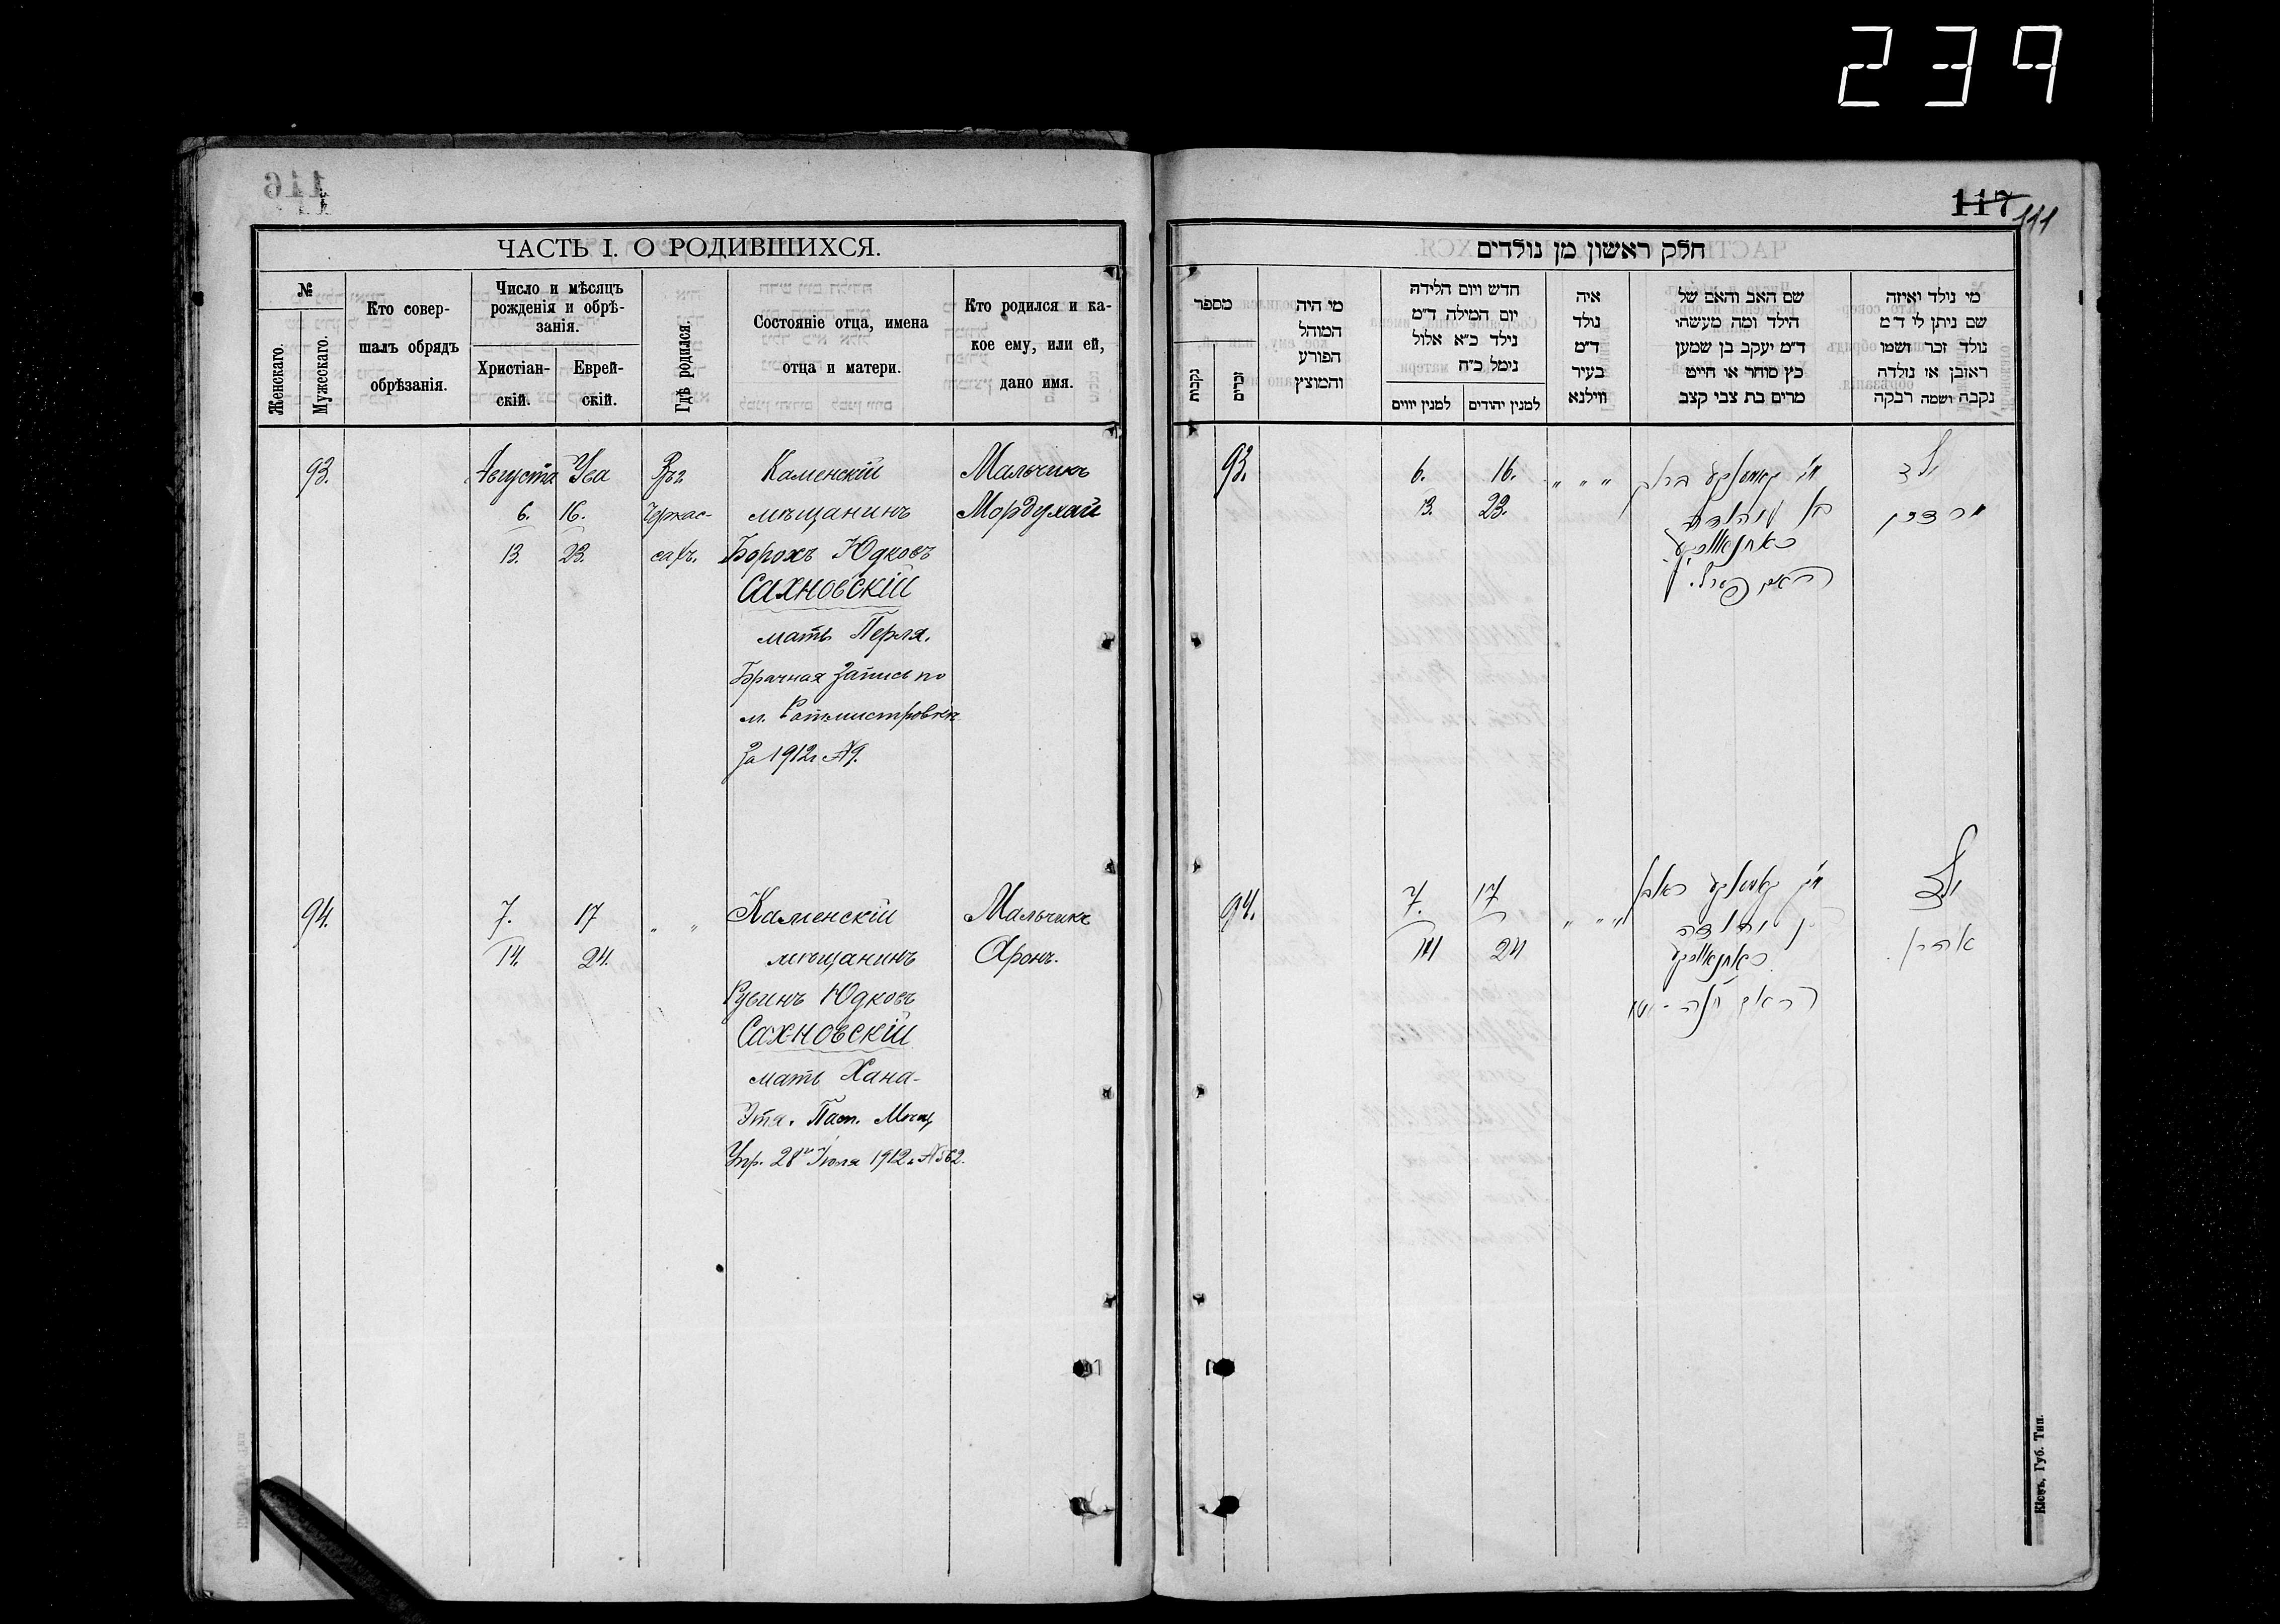 239
116
ЧАСТЬ I. О РОДИВШИХСЯ.
№
Женскаго.
Мужескаго.
Кто совер-
шалъ обрядъ
обрѣзанія.
Число и мѣсяцъ
рожденія и обрѣ-
занія.
Христіан-
скій.
Еврей-
скій.
Гдѣ родился.
Состояніе отца, имена
отца и матери.
Кто родился и ка-
кое ему, или ей,
дано имя.
93.
Августа
6.
13.
16.
23.
Черкас-
сахъ.
Каменскій
мѣщанинъ
Борохъ Юдковъ
Сахновскій
мать Перля.
Брачная запись по
м. Ротмистровкѣ
за 1912г №9.
Мальчикъ
Мордухай
94.
7.
14.
17
24.
" "
Каменскій
мѣщанинъ
Рувинъ Юдковъ
Сахновскій
мать Хана-
Этя. Пасп. Мѣщ
Упр. 28го Іюля 1912г №562.
Мальчикъ
Аронъ.
117
111
חלק ראשון מן נולדים
מספר
נקבות
זכרים
מי היה
המוהל
הפורע
והמוצץ
חדש ויום הלידה
יום המילה ד״מ
נילד כ״א אלול
נימל כ״ח
למנין יווים
למנין יהודים
איה
נולד
ד״מ
בעיר
ווילנא
שם האב והאם של
הילד ומה מעשהו
ד״מ יעקב בן שמען
כץ סוחר או חייט
מרים בת צבי קצב
מי נולד ואיזה
שם ניתן לו ד״מ
נולד זכר ושמו
ראובן או נולדה
נקבה ושמה רבקה
93.
6.
13.
16.
23.
" " "
ילד
מרדכי
94.
7.
14
17
24
" " "
ילד
אהרן
Кіевъ, Губ. Тип.